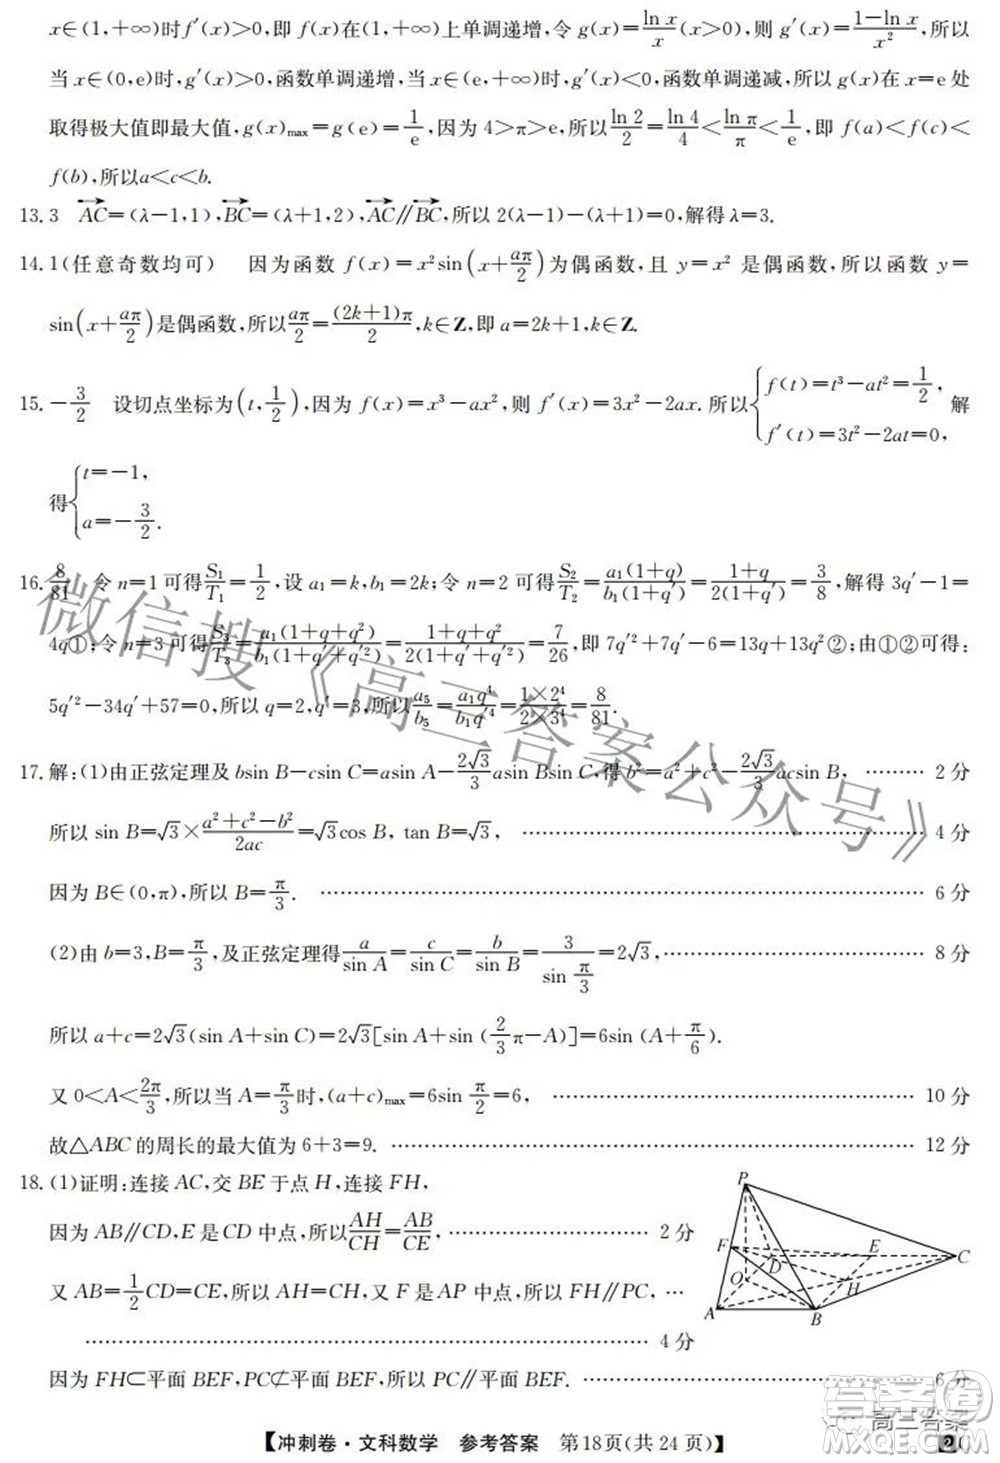 x∈(1,+∞)时f′(x)>0,即 f(x)在(1,+∞)上单调递增,令 g(x)=ln x/x(x>0),则 g′(x)=(1-ln x)/x²,所以
当 x∈(0,e)时,g′(x)>0,函数单调递增;当 x∈(e,+∞)时,g′(x)<0,函数单调递减,所以 g(x)在 x=e 处
取得极大值即最大值,g(x)max=g(e)=1/e,因为 4>π>e,所以ln 2/2=ln 4/4<ln π/π<1/e,即 f(a)<f(c)<
f(b),所以a<c<b.
13. 3 AC=(λ-1,1),BC=(λ+1,2),AC∥BC,所以 2(λ-1)-(λ+1)=0,解得 λ=3.
14. 1(任意奇数均可) 因为函数 f(x)=x²sin(x+aπ/2)为偶函数,且 y=x² 是偶函数,所以函数 y=
sin(x+aπ/2)是偶函数,所以aπ/2=(2k+1)π/2,k∈Z,即 a=2k+1,k∈Z.
15. -3/2 设切点坐标为(t,1/2),因为 f(x)=x³-ax²,则 f′(x)=3x²-2ax. 所以{f(t)=t³-at²=1/2, f′(t)=3t²-2at=0, 解
得{t=-1, a=-3/2.
16. 8/81 令 n=1 可得S₁/T₁=1/2,设 a₁=k,b₁=2k;令 n=2 可得S₂/T₂=a₁(1+q)/b₁(1+q′)=(1+q)/2(1+q′)=3/8,解得 3q′-1=
4q①;令 n=3 可得S₃/T₃=a₁(1+q+q²)/b₁(1+q′+q′²)=(1+q+q²)/2(1+q′+q′²)=7/26,即 7q′²+7q′-6=13q+13q²②;由①②可得:
5q′²-34q′+57=0,解得,q=2,q′=3,所以a₅/b₅=a₁q⁴/b₁q′⁴=1×2⁴/2×3⁴=8/81.
17. 解:(1)由正弦定理及 bsin B-csin C=asin A-2√3/3asin Bsin C,得 b²=a²+c²-2√3/3acsin B, ……… 2 分
所以 sin B=√3×(a²+c²-b²)/2ac=√3cos B, tan B=√3, ……… 4 分
因为 B∈(0,π),所以 B=π/3. ……… 6 分
(2)由 b=3,B=π/3,及正弦定理得a/sin A=c/sin C=b/sin B=3/sin π/3=2√3, ……… 8 分
所以 a+c=2√3(sin A+sin C)=2√3[sin A+sin (2/3π-A)]=6sin (A+π/6).
又 0<A<2π/3,所以当 A=π/3时,(a+c)max=6sin π/2=6, ……… 10 分
故△ABC 的周长的最大值为 6+3=9. ……… 12 分
18. (1)证明:连接 AC,交 BE 于点 H,连接 FH,
因为 AB∥CD,E 是 CD 中点,所以AH/CH=AB/CE, ……… 2 分
又 AB=1/2CD=CE,所以 AH=CH,又 F 是 AP 中点,所以 FH∥PC, …
……… 4 分
因为 FH⊂平面 BEF,PC⊄平面 BEF,所以 PC∥平面 BEF. ……… 6 分
P
F
E
D
C
O
H
A
B
微信搜《高三答案公众号》
答案圈
高三答案
【冲刺卷·文科数学 参考答案 第18页(共 24 页)】
2